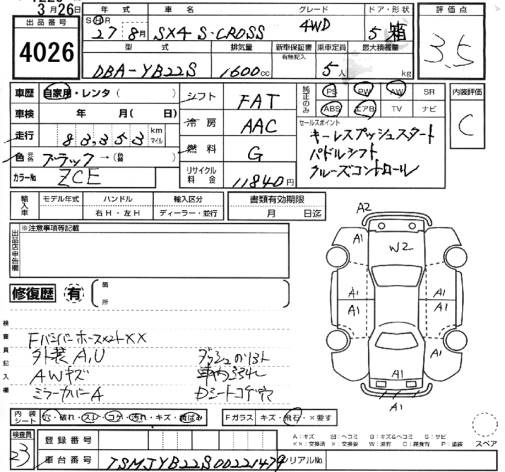 3月26日
出品番号
4026
年式 車名 グレード ドア・形状
SHR
27年8月 SX4 S-CROSS 4WD 5 箱
評価点
3.5
型式 排気量 新車保証書 有無記入 乗車定員 最大積載量
DBA-YB22S 1600cc 5人 kg
車歴 自家用・レンタ( )
シフト FAT
純正のみ PS PW AW SR
ABS エアB TV ナビ
内装評価
C
車検 年 月( 日)
冷房 AAC
セールスポイント
キーレスプッシュスタート
パドルシフト
クルーズコントロール
走行 83,353 km マイル
燃料 G
色 ブラック→
カラーNo ZCE
リサイクル料金 11840円
輸入車 モデル年式 ハンドル 輸入区分
右H・左H ディーラー・並行
書類有効期限
月 日迄
※注意事項等記載
修復歴 有 箇所
A2
A1
W2
A1
A1 A1 A1
A1
A1
A1
検査員記入欄
Fバンパーホースメント××
外装A,U
AWキズ
ミラーカバーA
内装シート 穴・破れ・スレ・コゲ・汚れ・キズ・
Fガラス キズ・飛石・×要す
A:キズ U:ヘコミ B:キズ&ヘコミ S:サビ
スペア
検査員
23
登録番号
車台番号 TSMJYB22S00221479 シリアルNo.